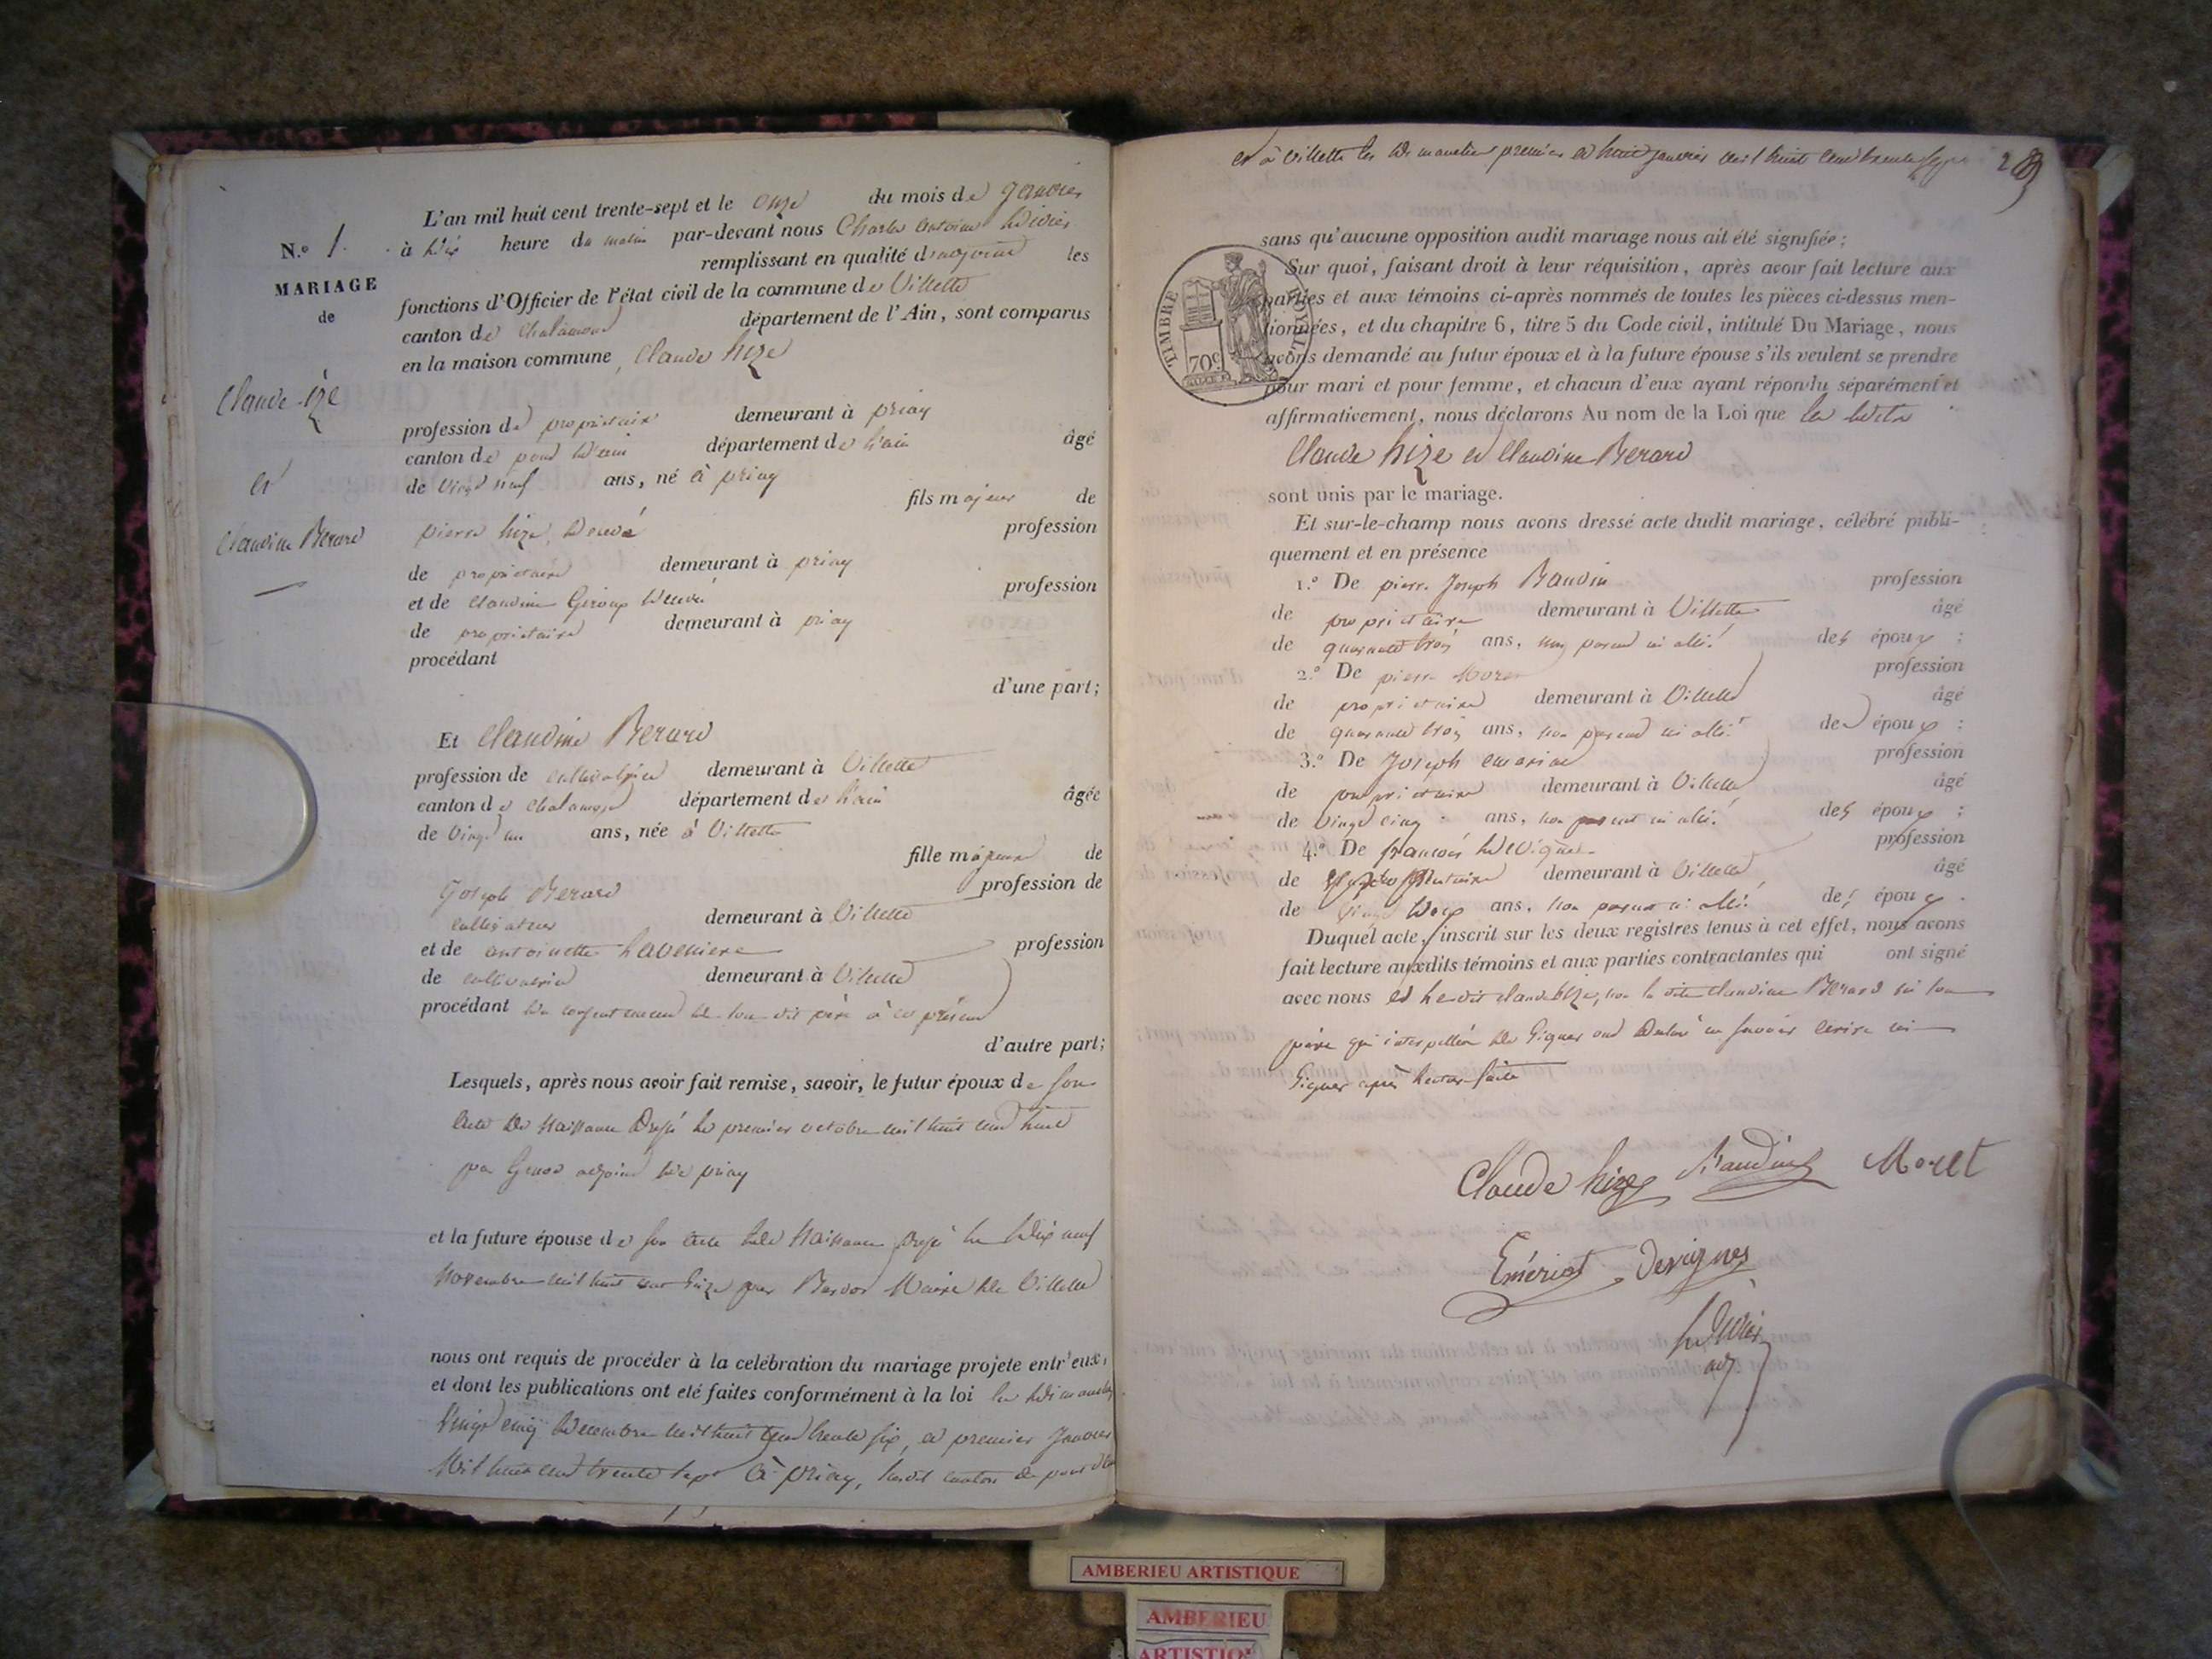 N.º 1.
MARIAGE
de
Claude ize
et
Claudine Berard
L'an mil huit cent trente-sept et le onze du mois de Janvier
à dix heure du matin par-devant nous Charles antoine
remplissant en qualité d'adjoint les
fonctions d'Officier de l'état civil de la commune de Villette
canton de Chalamont département de l'Ain, sont comparus
en la maison commune, Claude hize
profession de propriétaire demeurant à priay
canton de pont d'ain département de l'ain âgé
de vingt neuf ans, né à priay
fils majeur de
pierre hize, profession
de propriétaire demeurant à priay
et de claudine profession
de propriétaire demeurant à priay
procédant
d'une part;
Et Claudine Berard
profession de cultivatrice demeurant à Villette
canton de chalamont département de l'ain âgée
de vingt un ans, née à Villette
fille majeure de
Joseph Berard profession de
cultivateur demeurant à Villette
et de antoinette profession
de cultivatrice demeurant à Villette
procédant du consentement de son dit père à ce présent
d'autre part;
Lesquels, après nous avoir fait remise, savoir, le futur époux de son
acte de Naissance Dressé le premier octobre mil huit cent huit
par adjoint de priay
et la future épouse de son acte de Naissance Dressé le dix neuf
Novembre mil huit cent par Maire de Villette
nous ont requis de procéder à la celébration du mariage projete entr'eux,
et dont les publications ont eté faites conformément à la loi les dimanches
vingt cinq Decembre mil huit cent trente six, et premier Janvier
Mil huit cent trente sept à priay, canton de pont d'ain
et à Villette les dimanches premier et huit janvier mil huit cent trente sept
sans qu'aucune opposition audit mariage nous ait été signifiée;
Sur quoi, faisant droit à leur réquisition, après avoir fait lecture aux
parties et aux témoins ci-après nommés de toutes les pièces ci-dessus men-
tionnées, et du chapitre 6, titre 5 du Code civil, intitulé Du Mariage, nous
avons demandé au futur époux et à la future épouse s'ils veulent se prendre
pour mari et pour femme, et chacun d'eux ayant répondu séparément et
affirmativement, nous déclarons Au nom de la Loi que les dits
Claude hize et Claudine Berard
sont unis par le mariage.
Et sur-le-champ nous avons dressé acte dudit mariage, célébré publi-
quement et en présence
1.º De pierre Joseph Baudin profession
de propriétaire demeurant à Villette âgé
de quarante trois ans, non parent ni allié des époux;
2.º De pierre Moret profession
de propriétaire demeurant à Villette âgé
de quarante trois ans, non parent ni allié des époux:
3.º De Joseph profession
de propriétaire demeurant à Villette âgé
de vingt cinq ans, non parent ni allié des époux;
4.º De françois Devignes profession
de demeurant à Villette âgé
de vingt ans, non parent ni allié des époux.
Duquel acte, inscrit sur les deux registres tenus à cet effet, nous avons
fait lecture auxdits témoins et aux parties contractantes qui ont signé
avec nous et le dit claude hize, non la dite claudine Berard ni son
père qui interpellés de signer ont Déclaré ne savoir écrire ni
signer après lecture faite
TIMBRE ROYAL
70 c
Claude hize Baudin Moret
Emériat Devignes
adj.
AMBERIEU ARTISTIQUE
AMBERIEU
ARTISTIQ